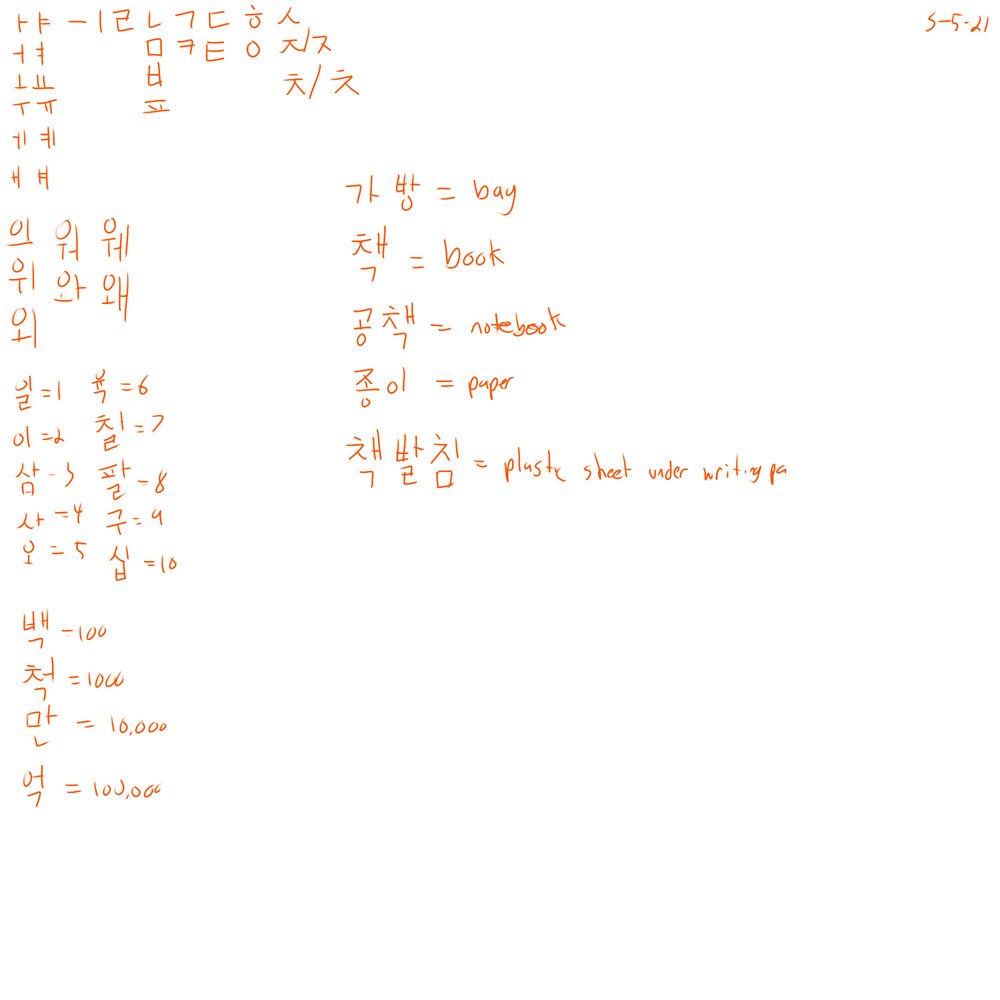 ㅏㅑ ㅡㅣㄹ ㄴ ㄱ ㄷ ㅎ ㅅ
5-5-21
ㅓㅕ ㅁ ㅋ ㅌ ㅇ ㅈ/ㅈ
ㅗㅛ ㅂ ㅊ/ㅊ
ㅜㅠ ㅍ
ㅔ ㅖ
ㅐ ㅒ
의 워 웨
위 와 왜
외
일=1 육=6
이=2 칠=7
삼-3 팔-8
사=4 구=9
오=5 십=10
백-100
척=1000
만=10,000
억=100,000
가방=bag
책=book
공책=notebook
종이=paper
책발침=plastic sheet under writing pa